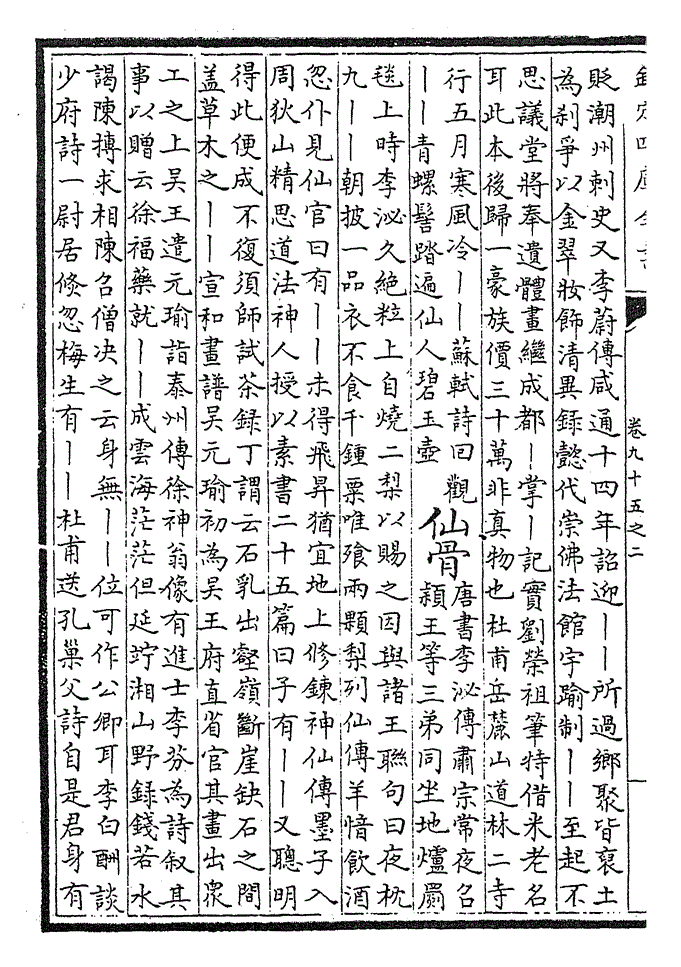 欽定四庫全書
卷九十五之二
貶潮州刺史又李蔚傳咸通十四年詔迎丨丨所過鄉聚皆裒土
為刹爭以金翠妝飾清異録懿代崇佛法館宇踰制丨丨至起不
思議堂將奉遺體畫繼成都丨掌丨記實劉榮祖筆特借米老名
耳此本後歸一豪族價三十萬非真物也杜甫岳麓山道林二寺
行五月寒風冷丨丨蘇軾詩曰觀
丨丨青螺髻踏遍仙人碧玉壺
仙骨
唐書李泌傳肅宗常夜召
潁王等三弟同坐地爐罽
毯上時李泌久絶粒上自燒二梨以賜之因與諸王聯句曰夜枕
九丨丨朝披一品衣不食千鍾粟唯飱兩顆梨列仙傳羊愔飲酒
忽仆見仙官曰有丨丨未得飛昇猶宜地上修鍊神仙傳墨子入
周狄山精思道法神人授以素書二十五篇曰子有丨丨又聰明
得此便成不復須師試茶録丁謂云石乳出壑嶺斷崖缺石之間
盖草木之丨丨宣和畫譜吳元瑜初為吳王府直省官其畫出衆
工之上吳王遣元瑜詣泰州傳徐神翁像有進士李芬為詩叙其
事以贈云徐福藥就丨丨成雲海茫茫但延竚湘山野録錢若水
謁陳摶求相陳召僧决之云身無丨丨位可作公卿耳李白酬談
少府詩一尉居倐忽梅生有丨丨杜甫送孔巢父詩自是君身有